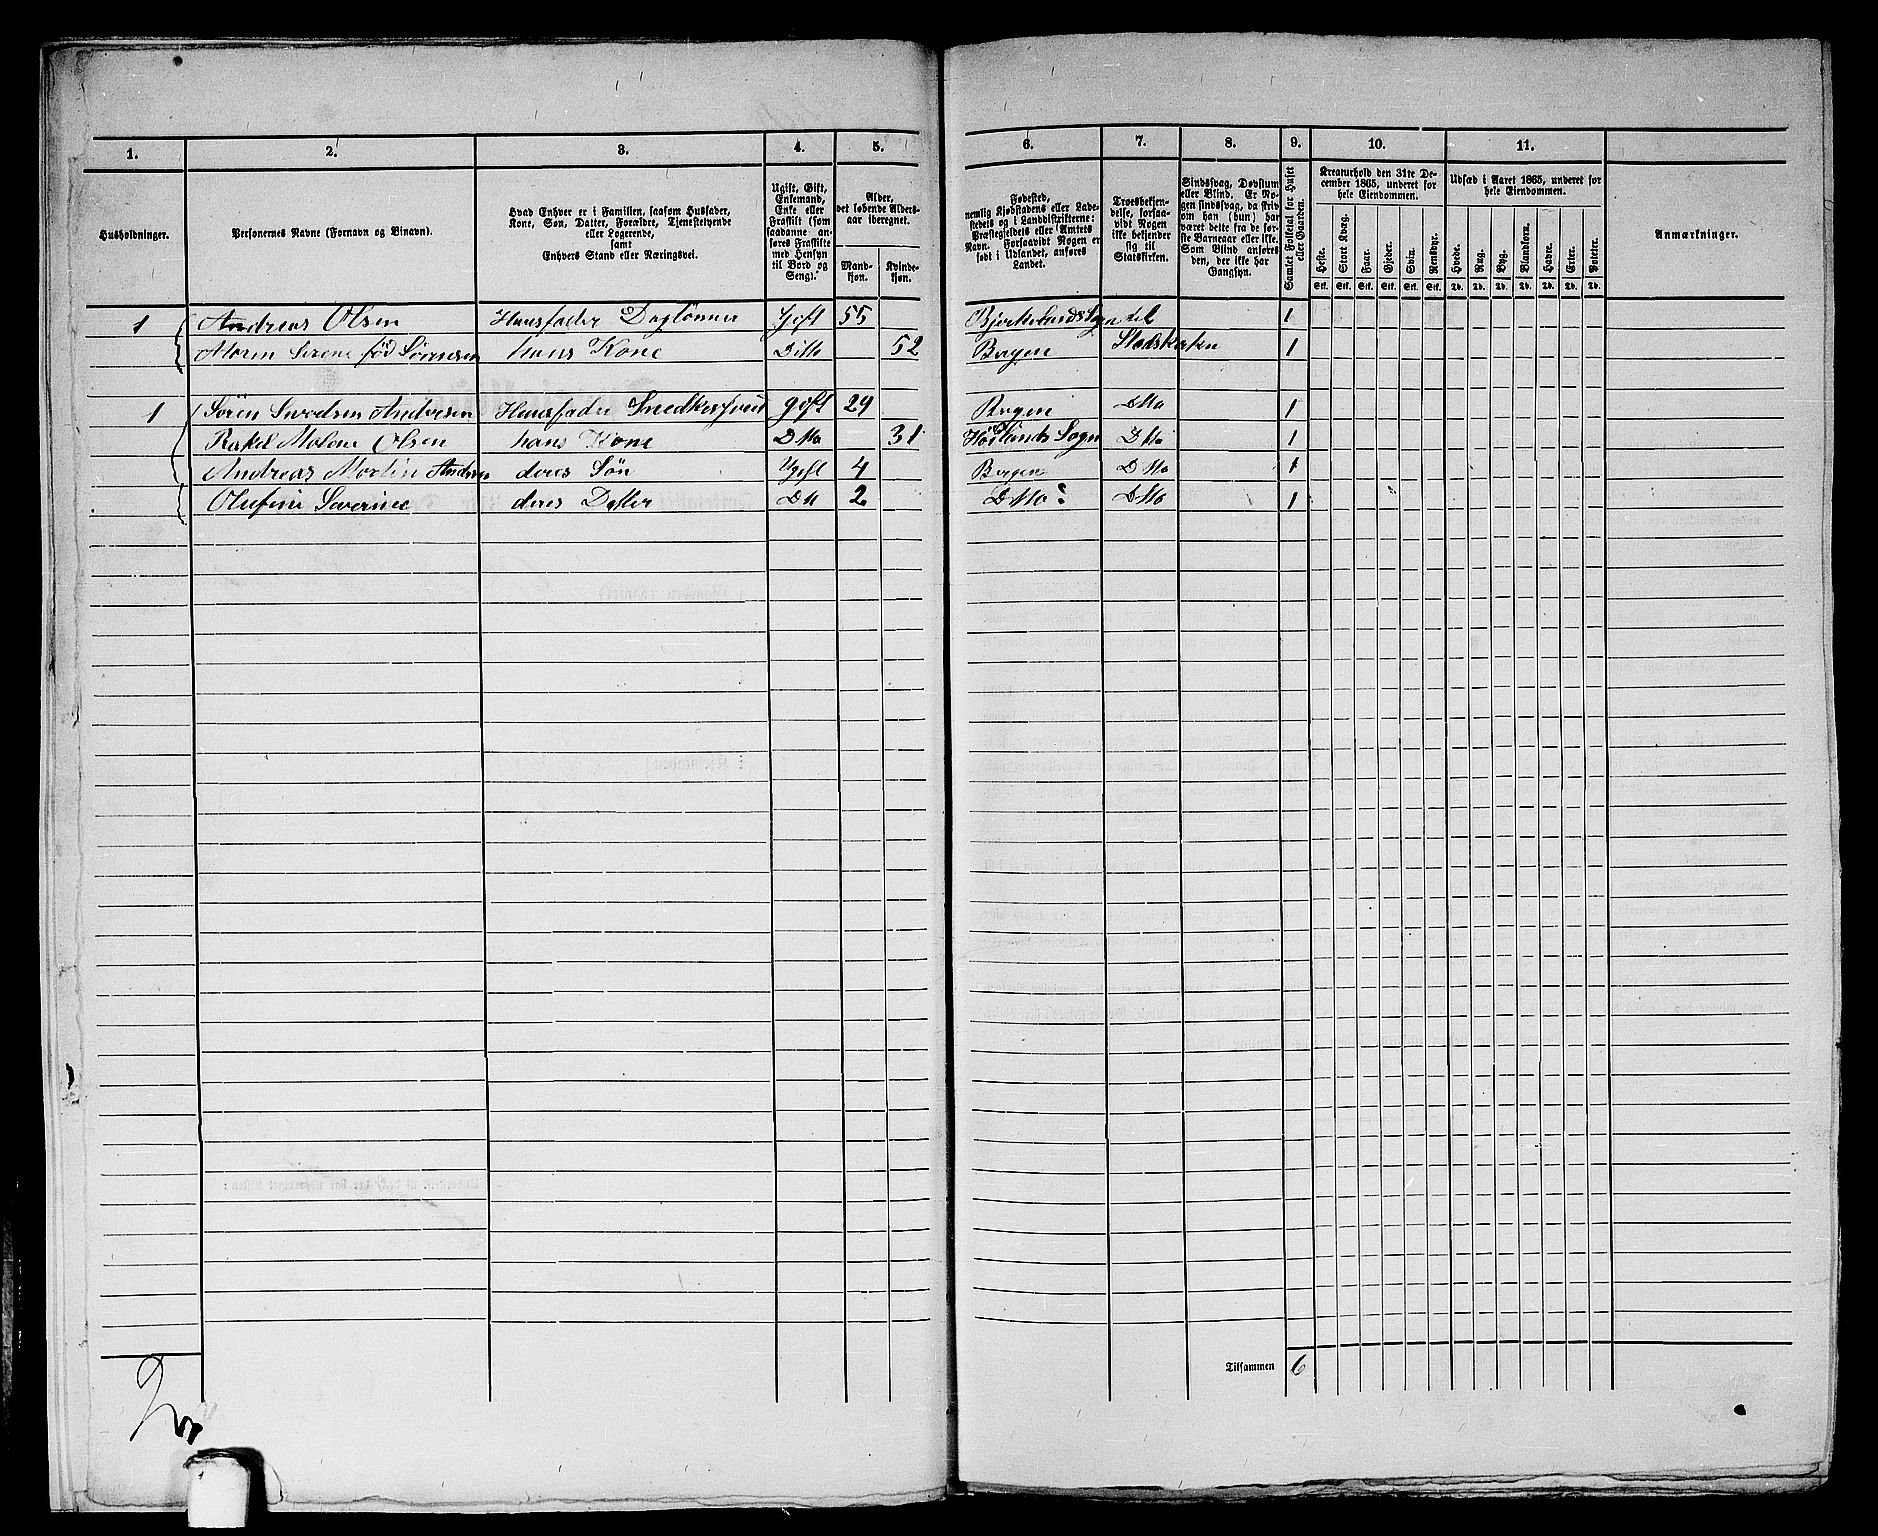 1. 2. 3. 4. 5. 6. 7. 8. 9. 10. 11.
Husholdninger.
Personernes Navne (Fornavn og Binavn).
Hvad Enhver er i Familien, saasom Husfader,
Kone, Søn, Datter, Forældre, Tjenestetyende
eller Logerende,
samt
Enhvers Stand eller Næringsvei.
Ugift, Gift,
Enkemand,
Enke eller
Fraskilt (som
saadanne an-
føres Fraskilte
med Hensyn
til Bord og
Seng).
Alder,
det løbende Alders-
aar iberegnet.
Mand-
kjøn.
Kvinde-
kjøn.
Fødested,
nemlig Kjøbstadens eller Lade-
stedets og i Landdistrikterne:
Præstegjeldets eller Amtets
Navn. Forsaavidt Nogen er
født i Udlandet, anføres
Landet.
Troesbekjen-
delse, forsaa-
vidt Nogen
ikke bekjender
sig til
Statskirken.
Sindssvag, Døvstum
eller Blind. Er No-
gen sindssvag, da skriv
om han (hun) har
været dette fra de før-
ste Barneaar eller ikke.
Som Blind anføres
den, der ikke har
Gangsyn.
Samlet Folketal for Huset
eller Gaarden.
Kreaturhold den 31te De-
cember 1865, underet for
hele Eiendommen.
Heste. Stort Kvæg. Faar. Gjeder. Svin. Rensdyr.
Stk. Stk. Stk. Stk. Stk. Stk.
Udsæd i Aaret 1865, underet for
hele Eiendommen.
Hvede. Rug. Byg. Blandkorn. Havre. Erter. Poteter.
Td. Td. Td. Td. Td. Td. Td.
Anmærkninger.
1 Andreas Olsen Huusfader Daglønner Gift 55 Bjerkelands Sogn 1
Maren Serene fød Sørensen hans Kone Ditto 52 Bergen Statskirken 1
1 Søren Andersen Huusfader gift 29 Bergen Dtto 1
Rakel Malene Olsen hans Kone Dtto 31 Sogn Dtto 1
Andreas Martin Andersen deres Søn Ugift 4 Bergen Dtto 1
Olufine Severine deres Datter Dtt 2 Dtto Dtto 1
Tilsammen 6